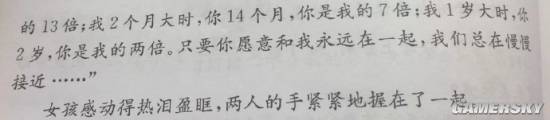 的13倍;我2个月大时,你14个月,你是我的7倍;我1岁大时,你
2岁,你是我的两倍。只要你愿意和我永远在一起,我们总在慢慢
接近……”
女孩感动得热泪盈眶,两人的手紧紧地握在了一起。
GAMERSKY